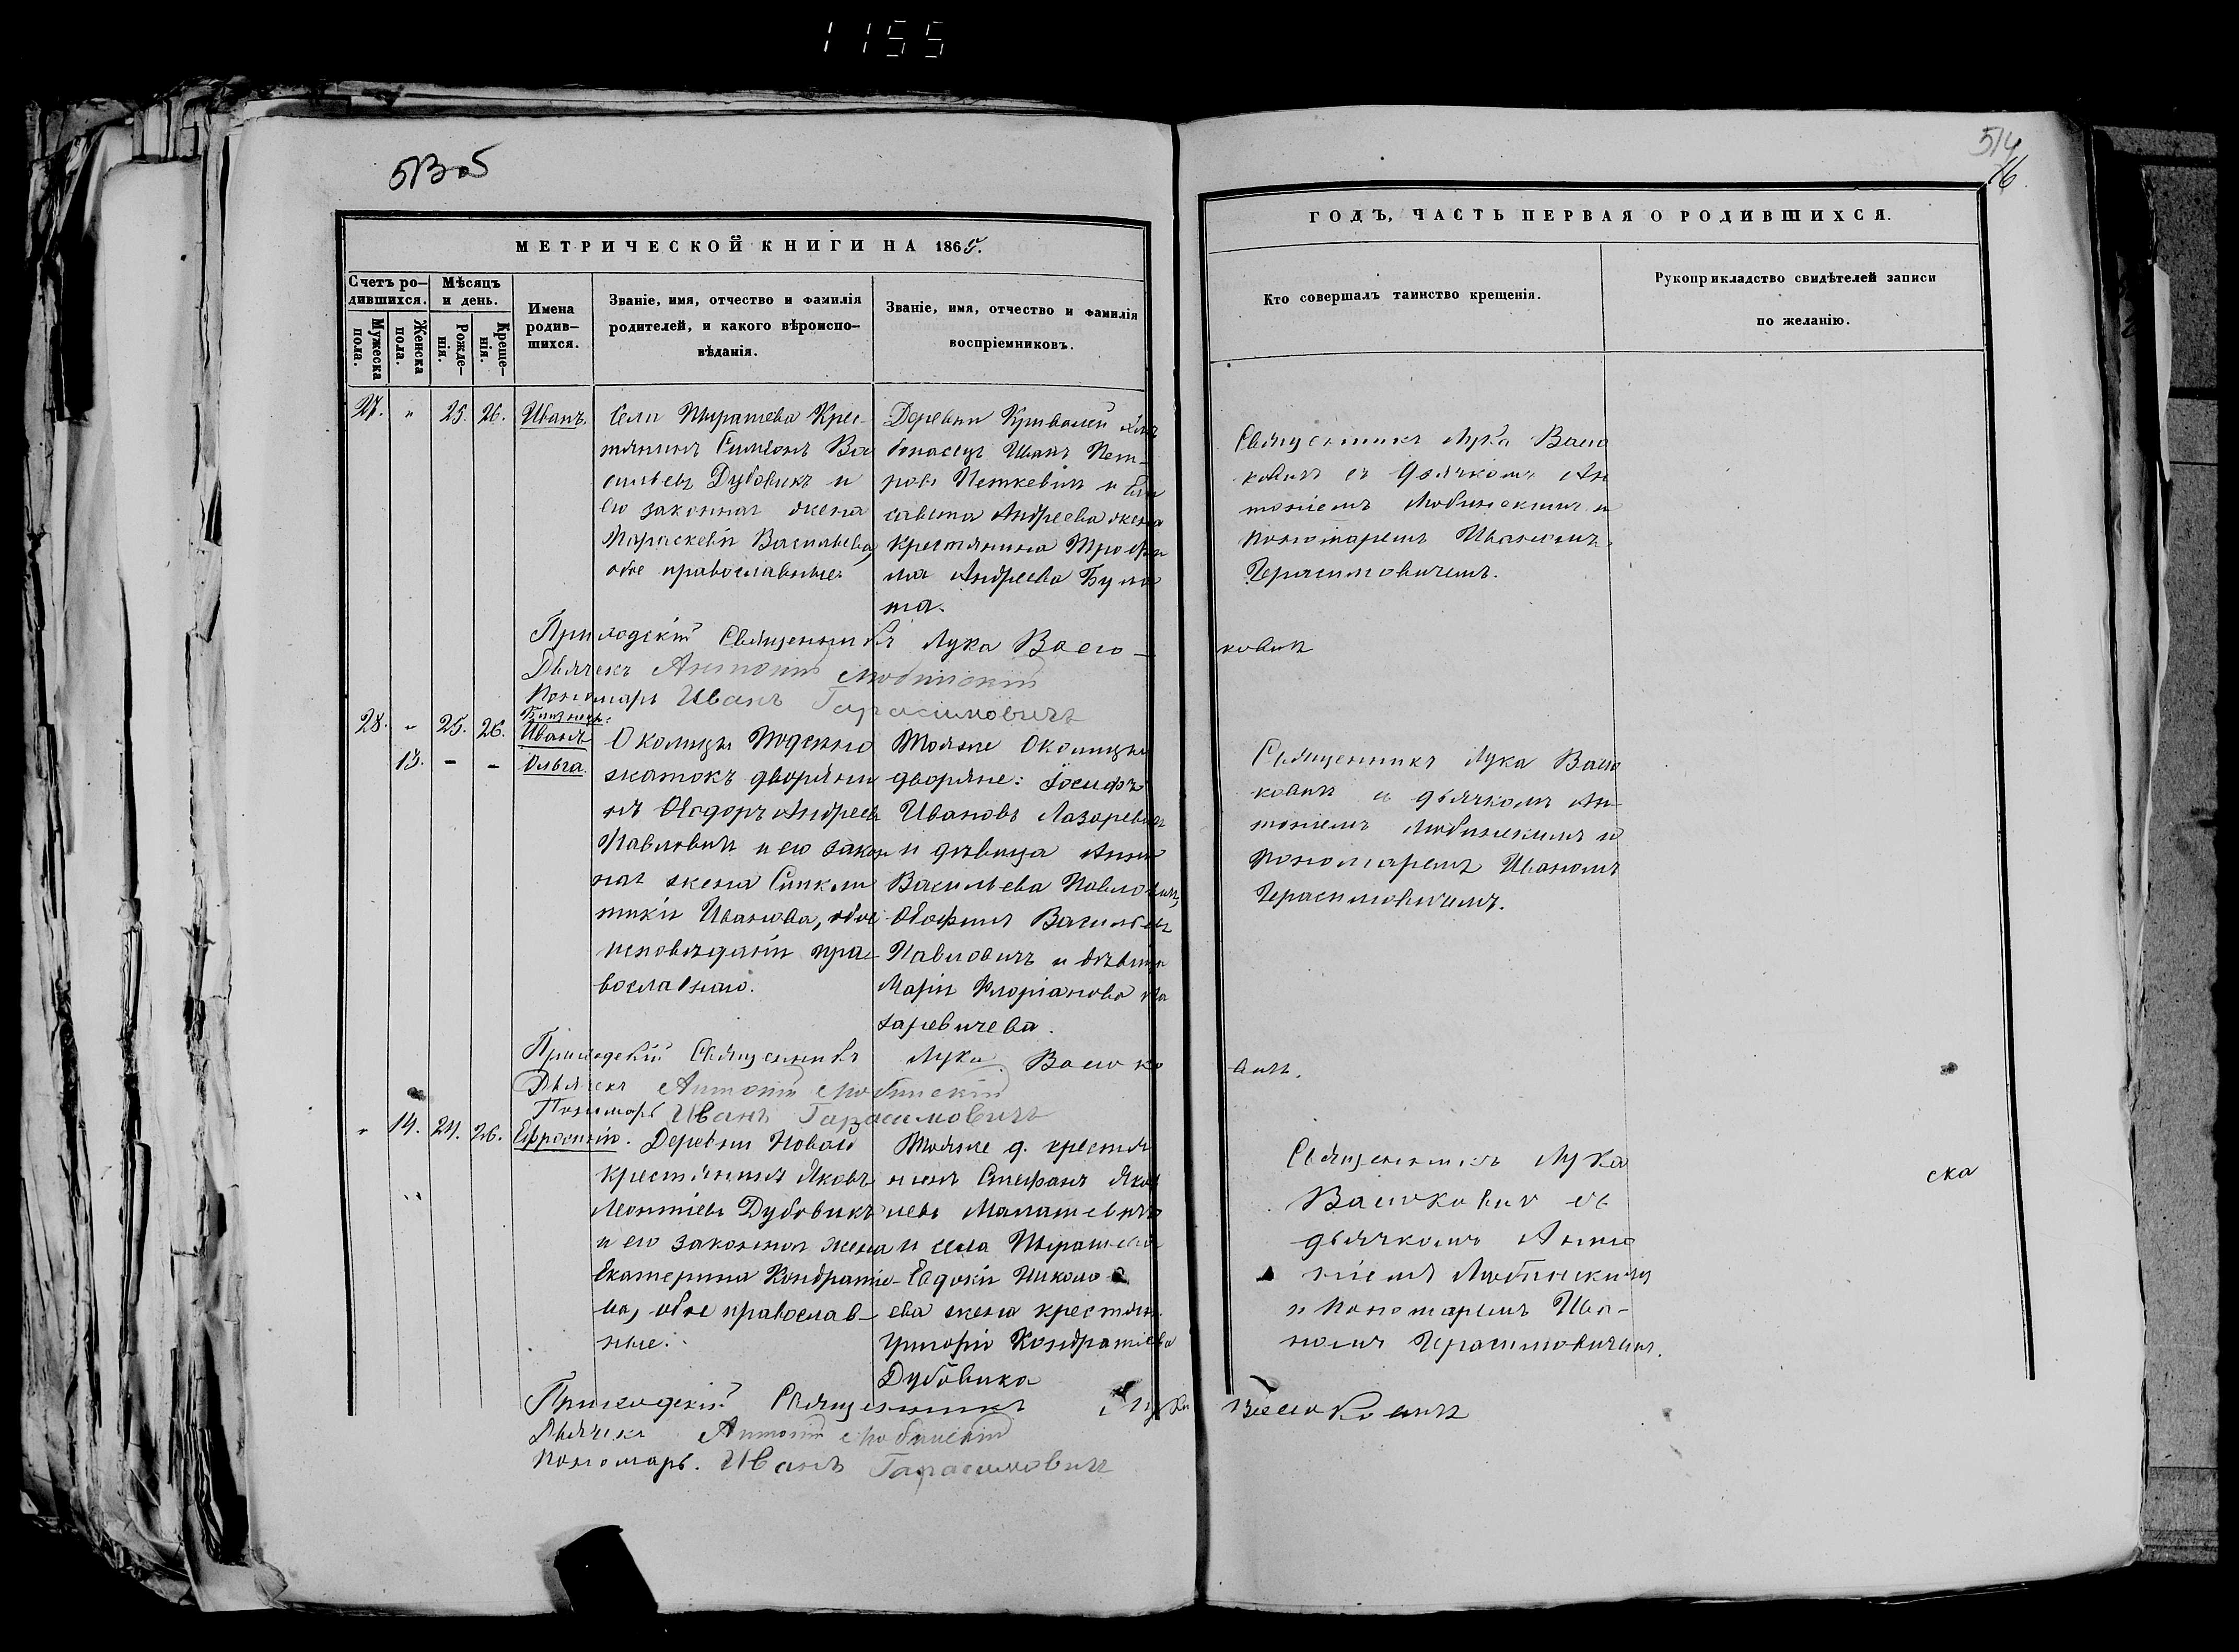 1155
513об
514
16.
МЕТРИЧЕСКОЙ КНИГИ НА 1865.
ГОДЪ, ЧАСТЬ ПЕРВАЯ О РОДИВШИХСЯ.
Счетъ ро-
дившихся.
Мужеска
пола.
Женска
пола.
Мѣсяцъ
и день.
Рожде-
нія.
Креще-
нія.
Имена
родив-
шихся.
Званіе, имя, отчество и фамилія
родителей, и какого вѣроиспо-
вѣданія.
Званіе, имя, отчество и фамилія
воспріемниковъ.
Кто совершалъ таинство крещенія.
Рукоприкладство свидѣтелей записи
по желанію.
27. " 25. 26. Иванъ.
Села Крес-
тянинъ Симеонъ Ва
сильевъ Дубовикъ и
его законная жена
Параскевія Васильева,
обое православные.
Деревни
Иванъ Пет-
ровъ Петкевичъ и Ели
савета Андреева жена
крестянина Трофи
ма Андреева Була
та.
Священникъ Лука Васю
ковичъ съ дьячкомъ Ан
тоніемъ Любинскимъ и
пономаремъ Иваномъ
Герасимовичемъ.
Приходскій Священникъ Лука Васю-
ковичъ
Дьячекъ Антоній Любинскій
Пономарь Иванъ Гарасимовичъ
28. " 25. 26. Близнецы:
Иванъ
13. - - Ольга.
Околицы
дворяни
нъ Ѳеодоръ Андреевъ
Павловичъ и его закон
ная жена Синкли
тикія Иванова, обое
исповѣданія пра-
вославнаго.
Тойже Околицы
дворяне: Іосифъ
Ивановъ Лазаревичъ
и дѣвица Анна
Васильева Павловичъ,
Васильевъ
Павловичъ и дѣвица
Марія Флоріанова Ла
заревичева.
Священникъ Лука Васю
ковичъ съ дьячкомъ Ан-
тоніемъ Любинскимъ и
пономаремъ Иваномъ
Герасимовичемъ.
Приходскій Священникъ Лука Васюко
вичъ.
Дьячекъ Антоній Любинскій
Пономарь Иванъ Гарасимовичъ
" 14. 24. 26. Ефросинія.
Деревни Новой
крестьянинъ Яковъ
Леонтіевъ Дубовикъ
и его законная жена
Екатерина Кондратіе-
ва, обое православ-
ные.
Тойже д. крестья
нинъ Стефанъ Яков
левъ
и села
Евдокія Никола
ева жена крестян.
Григорія Кондратіева
Дубовика
Священникъ Лука
Васюковичъ съ
дьячкомъ Анто
ніемъ Любинскимъ
и пономаремъ Ива-
номъ Герасимовичемъ.
ска
Приходскій Священникъ Лука Васюковичъ
Дьячекъ Антоній Любинскій
Пономарь. Иванъ Гарасимовичъ